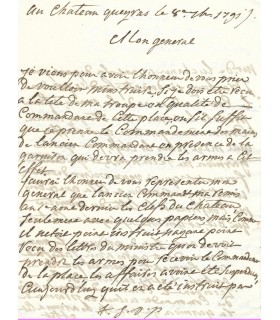 au Chateau queyras le 8e 7bre 1791
Mon general
Je viens pour avoir lhonneur de vous prier
de vouloir minstruire si je dois etre recu
a la tete de ma troupe en qualité de
Commandant de cette place, ou sil suffit
que je prenne le Commandement des mains
de lancien Commandant en presence de la
garnison qui devra prendre les armes a cet
Effet
Jaurai lhonneur de vous representer mon
general que lancien Commandant
les Clefs du Chateau
seulement avec quelques papiers mais comme
il netoit point instruit
recu des lettres du ministre quon devoit
prendre les armes pour recevoir le Commandant
de la place les affaires
aujourdhuy quil en a eté instruit par
T. S. V. P.